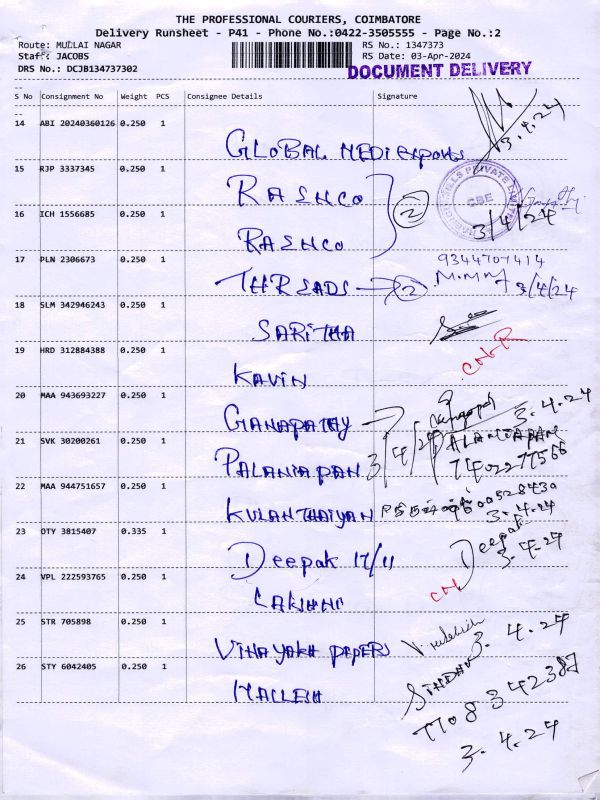 THE PROFESSIONAL COURIERS, COIMBATORE
Delivery Runsheet - P41 - Phone No.:0422-3505555 - Page No.:2
Route: MULLAI NAGAR RS No.: 1347373
Staff: JACOBS RS Date: 03-Apr-2024
DRS No.: DCJB134737302 DOCUMENT DELIVERY
S No Consignment No Weight PCS Consignee Details Signature
14 ABI 20240360126 0.250 1 GLOBAL MEDI Exports 3.4.24
15 RJP 3337345 0.250 1 RASHCO
CBE
PRIVATE LIMITED
2 3/4/24
16 ICH 1556685 0.250 1 RASHCO
17 PLN 2306673 0.250 1 THREADS 2 9344707414 3/4/24
18 SLM 342946243 0.250 1 SARITHA
19 HRD 312884388 0.250 1 KAVIN CN-R
20 MAA 943693227 0.250 1 GANAPATHY 3.4.24
21 SVK 30200261 0.250 1 PALANIAPAN 3/4/24 PALANIAPAN
7402277566
22 MAA 944751657 0.250 1 KULANTHAIYAN 3.4.24
23 OTY 3815407 0.335 1 Deepak 17/11 Deepak 3.4.24
24 VPL 222593765 0.250 1 LAKSHMI CN
25 STR 705898 0.250 1 VINAYAKA PAPERS 3.4.24
26 STY 6042405 0.250 1 MALLESH
7708342387
3.4.24